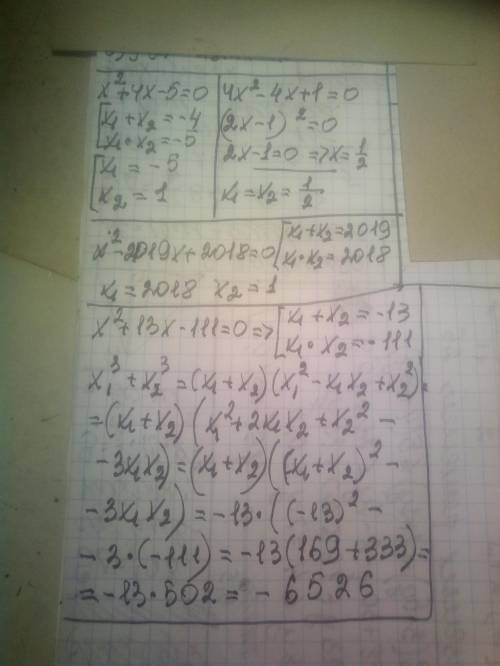 x²+4x-5=0
[x₁+x₂=-4
x₁·x₂=-5
[x₁=-5
x₂=1
4x²-4x+1=0
(2x-1)²=0
2x-1=0=>x=1/2
x₁=x₂=1/2.
x²-2019x+2018=0 [x₁+x₂=2019
x₁·x₂=2018
x₁=2018 x₂=1
x²+13x-111=0=> [x₁+x₂=-13
x₁·x₂=-111
x₁³+x₂³=(x₁+x₂)(x₁²-x₁x₂+x₂²)=
=(x₁+x₂)(x₁²+2x₁x₂+x₂²-
-3x₁x₂)=(x₁+x₂)((x₁+x₂)²-
-3x₁x₂)=-13·((-13)²-
-3·(-111)=-13(169+333)=
=-13·502=-6526